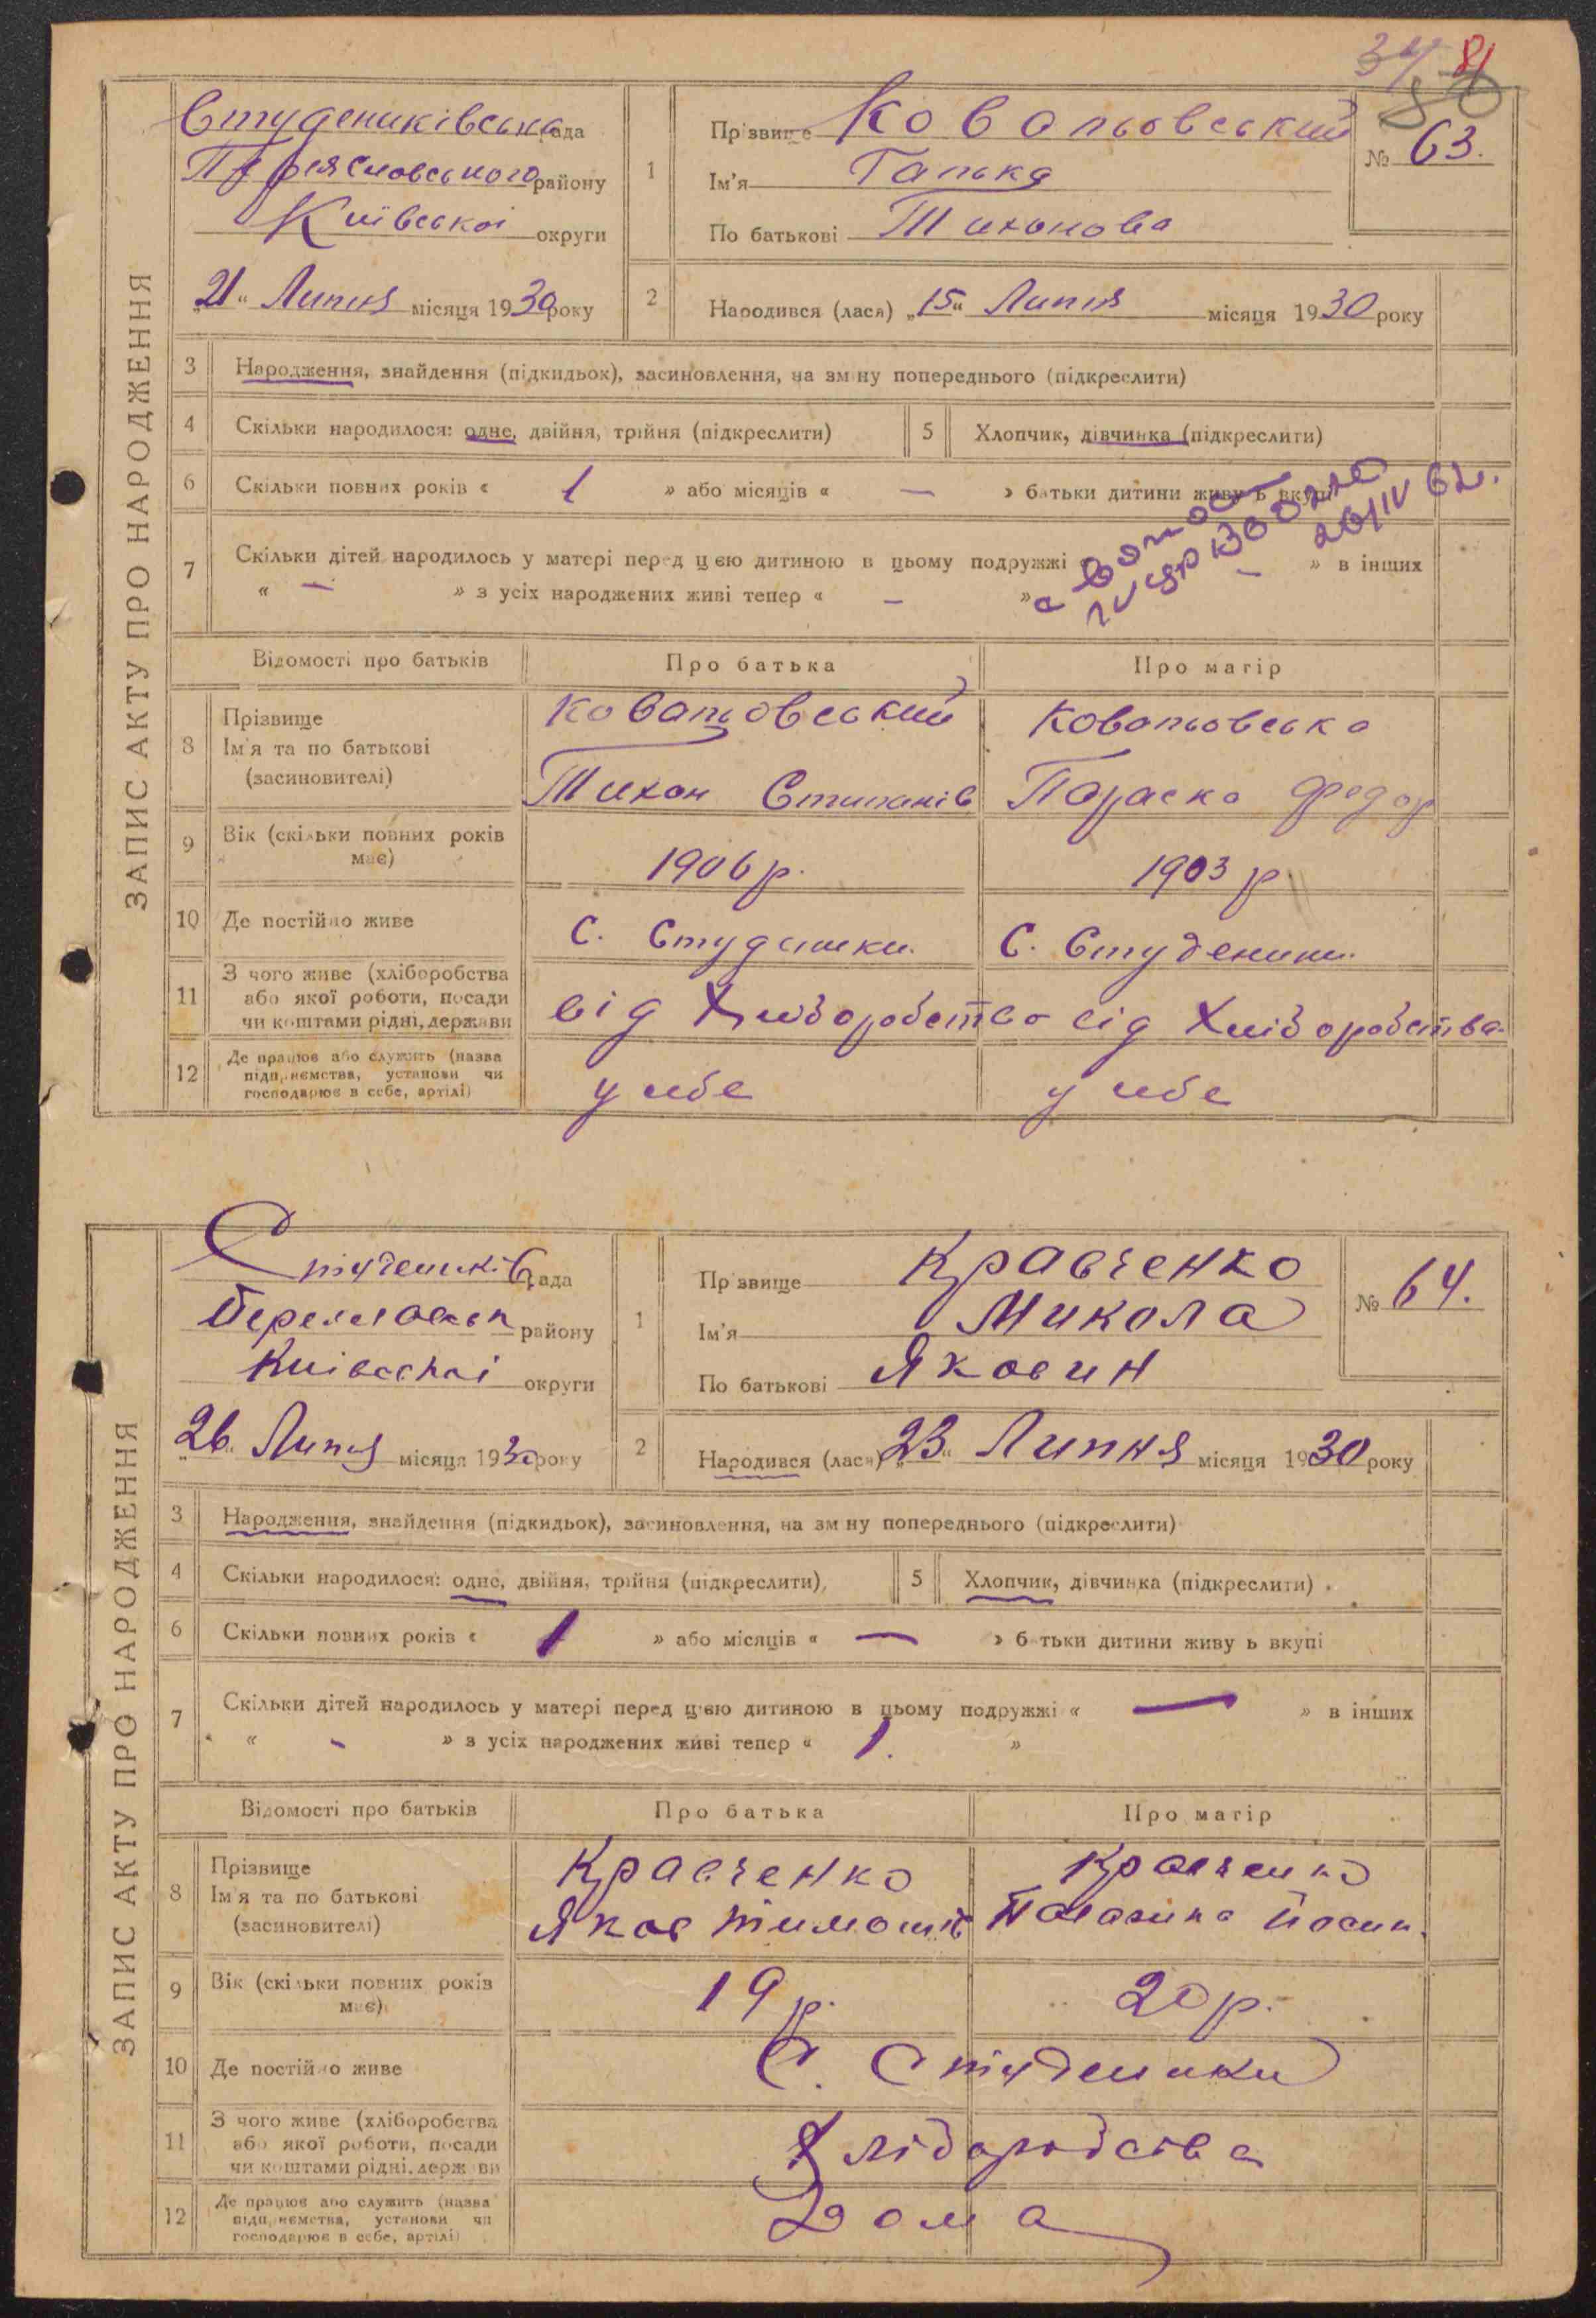 34 81
80
ЗАПИС АКТУ ПРО НАРОДЖЕННЯ
Студениківська рада
Переясловського району
Київської округи
„21“ Липня місяця 1930 року
1
Прізвище Ковальовський
Ім'я Галька
По батькові Тихонова
№ 63.
2 Народився (лася) „15“ Липня місяця 1930 року
3 Народження, знайдення (підкидьок), засиновлення, на зміну попереднього (підкреслити)
4 Скільки народилося: одне, двійня, трійня (підкреслити) 5 Хлопчик, дівчинка (підкреслити)
6 Скільки повних років « 1 » або місяців « — » батьки дитини живуть вкупі
7 Скільки дітей народилось у матері перед цією дитиною в цьому подружжі « — » в інших
« — » з усіх народжених живі тепер « — »
20/IV 62.
Відомості про батьків Про батька Про матір
8 Прізвище Ім'я та по батькові (засиновителі)
Ковальовський Ковальовська
Тихон Степанів Параска Федор
9 Вік (скільки повних років має) 1906 р. 1903 р.
10 Де постійно живе с. Студеники. с. Студеники.
11 З чого живе (хліборобства або якої роботи, посади чи коштами рідні, держави від Хліборобства від Хліборобства
12 Де працює або служить (назва підприємства, установи чи господарює в себе, артілі) у себе у себе
ЗАПИС АКТУ ПРО НАРОДЖЕННЯ
Студеників рада
Переяславськ району
Київської округи
„26“ Липня місяця 1930 року
1
Прізвище Кравченко
Ім'я Микола
По батькові Яковин
№ 64.
2 Народився (лася) „23“ Липня місяця 1930 року
3 Народження, знайдення (підкидьок), засиновлення, на зміну попереднього (підкреслити)
4 Скільки народилося: одне, двійня, трійня (підкреслити) 5 Хлопчик, дівчинка (підкреслити)
6 Скільки повних років « 1 » або місяців « — » батьки дитини живуть вкупі
7 Скільки дітей народилось у матері перед цією дитиною в цьому подружжі « — » в інших
« - » з усіх народжених живі тепер « 1. »
Відомості про батьків Про батька Про матір
8 Прізвище Ім'я та по батькові (засиновителі)
Кравченко Кравченко
Яков Тимошів Палазина Йосип.
9 Вік (скільки повних років має) 19 р. 20 р.
10 Де постійно живе С. Студеники
11 З чого живе (хліборобства або якої роботи, посади чи коштами рідні, держави Хліборобства
12 Де працює або служить (назва підприємства, установи чи господарює в себе, артілі) Дома